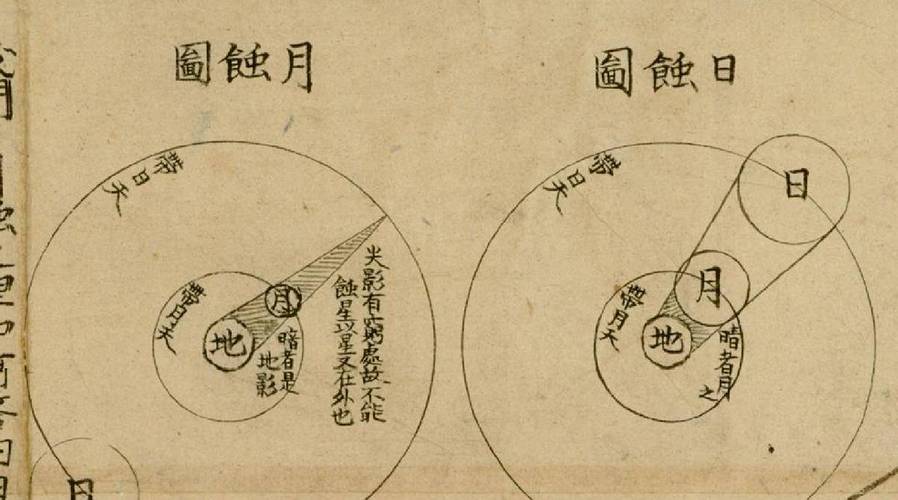 日蝕圖
帶日天
日
月
帶月天
地
暗者月
之
月蝕圖
帶日天
帶月天
月
地
暗者是
地影
尖影有窮處故不能
蝕星以星又在外也
日